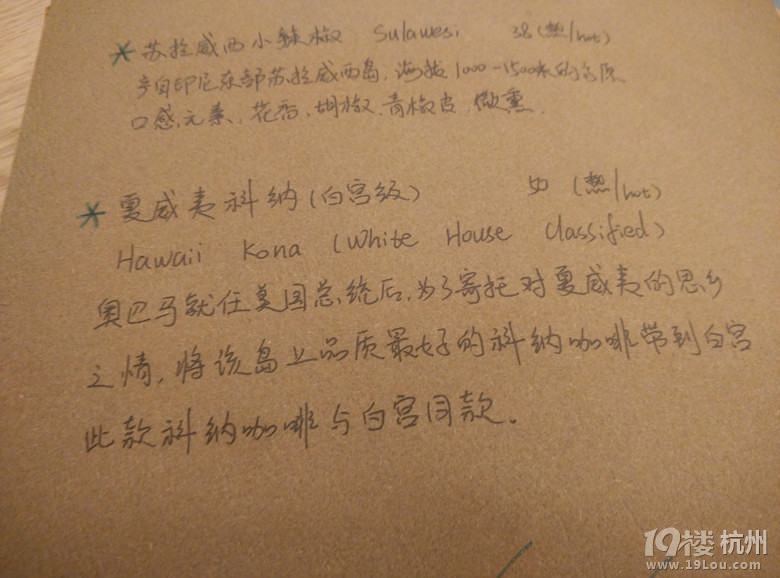 * 苏拉威西小辣椒 Sulawesi 38(热/hot)
产自印尼东部苏拉威西岛,海拔1000-1500米的
口感元素,花香,胡椒,青椒皮,微熏
* 夏威夷科纳(白宫级) 50(热/hot)
Hawaii Kona (White House Classified)
奥巴马就任美国总统后,为了寄托对夏威夷的思乡
之情,将该岛上品质最好的科纳咖啡带到白宫
此款科纳咖啡与白宫同款。
19楼 杭州
www.19Lou.com